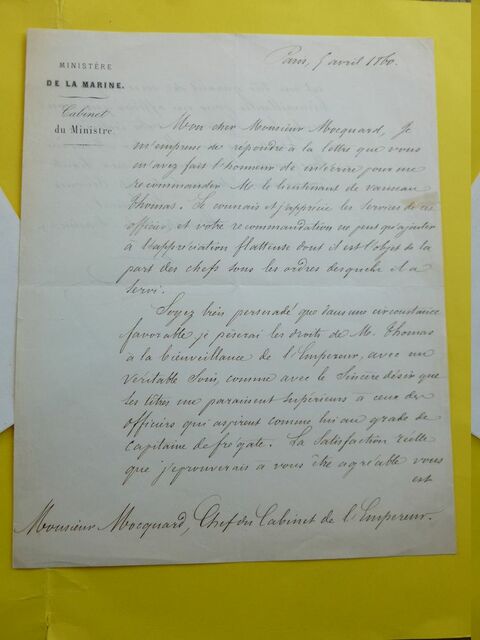 MINISTÈRE
DE LA MARINE.
Cabinet
du Ministre.
Paris, 5 avril 1860.
Mon cher Monsieur Mocquard, Je
m'empresse de répondre à la lettre que vous
m'avez fait l'honneur de m'écrire pour me
recommander M. le lieutenant de vaisseau
Thomas. Je connais et j'apprécie les services de cet
officier, et votre recommandation ne peut qu'ajouter
à l'appréciation flatteuse dont il est l'objet de la
part des chefs sous les ordres desquels il a
servi.
Soyez bien persuadé que dans une circonstance
favorable je pèserai les droits de M. Thomas
à la bienveillance de l'Empereur, avec un
véritable soin, comme avec le sincère désir que
ses titres me paraissent supérieurs à ceux des
officiers qui aspirent comme lui au grade de
Capitaine de frégate. La satisfaction réelle
que j'éprouverais à vous être agréable vous
est
Monsieur Mocquard, Chef du Cabinet de l'Empereur.